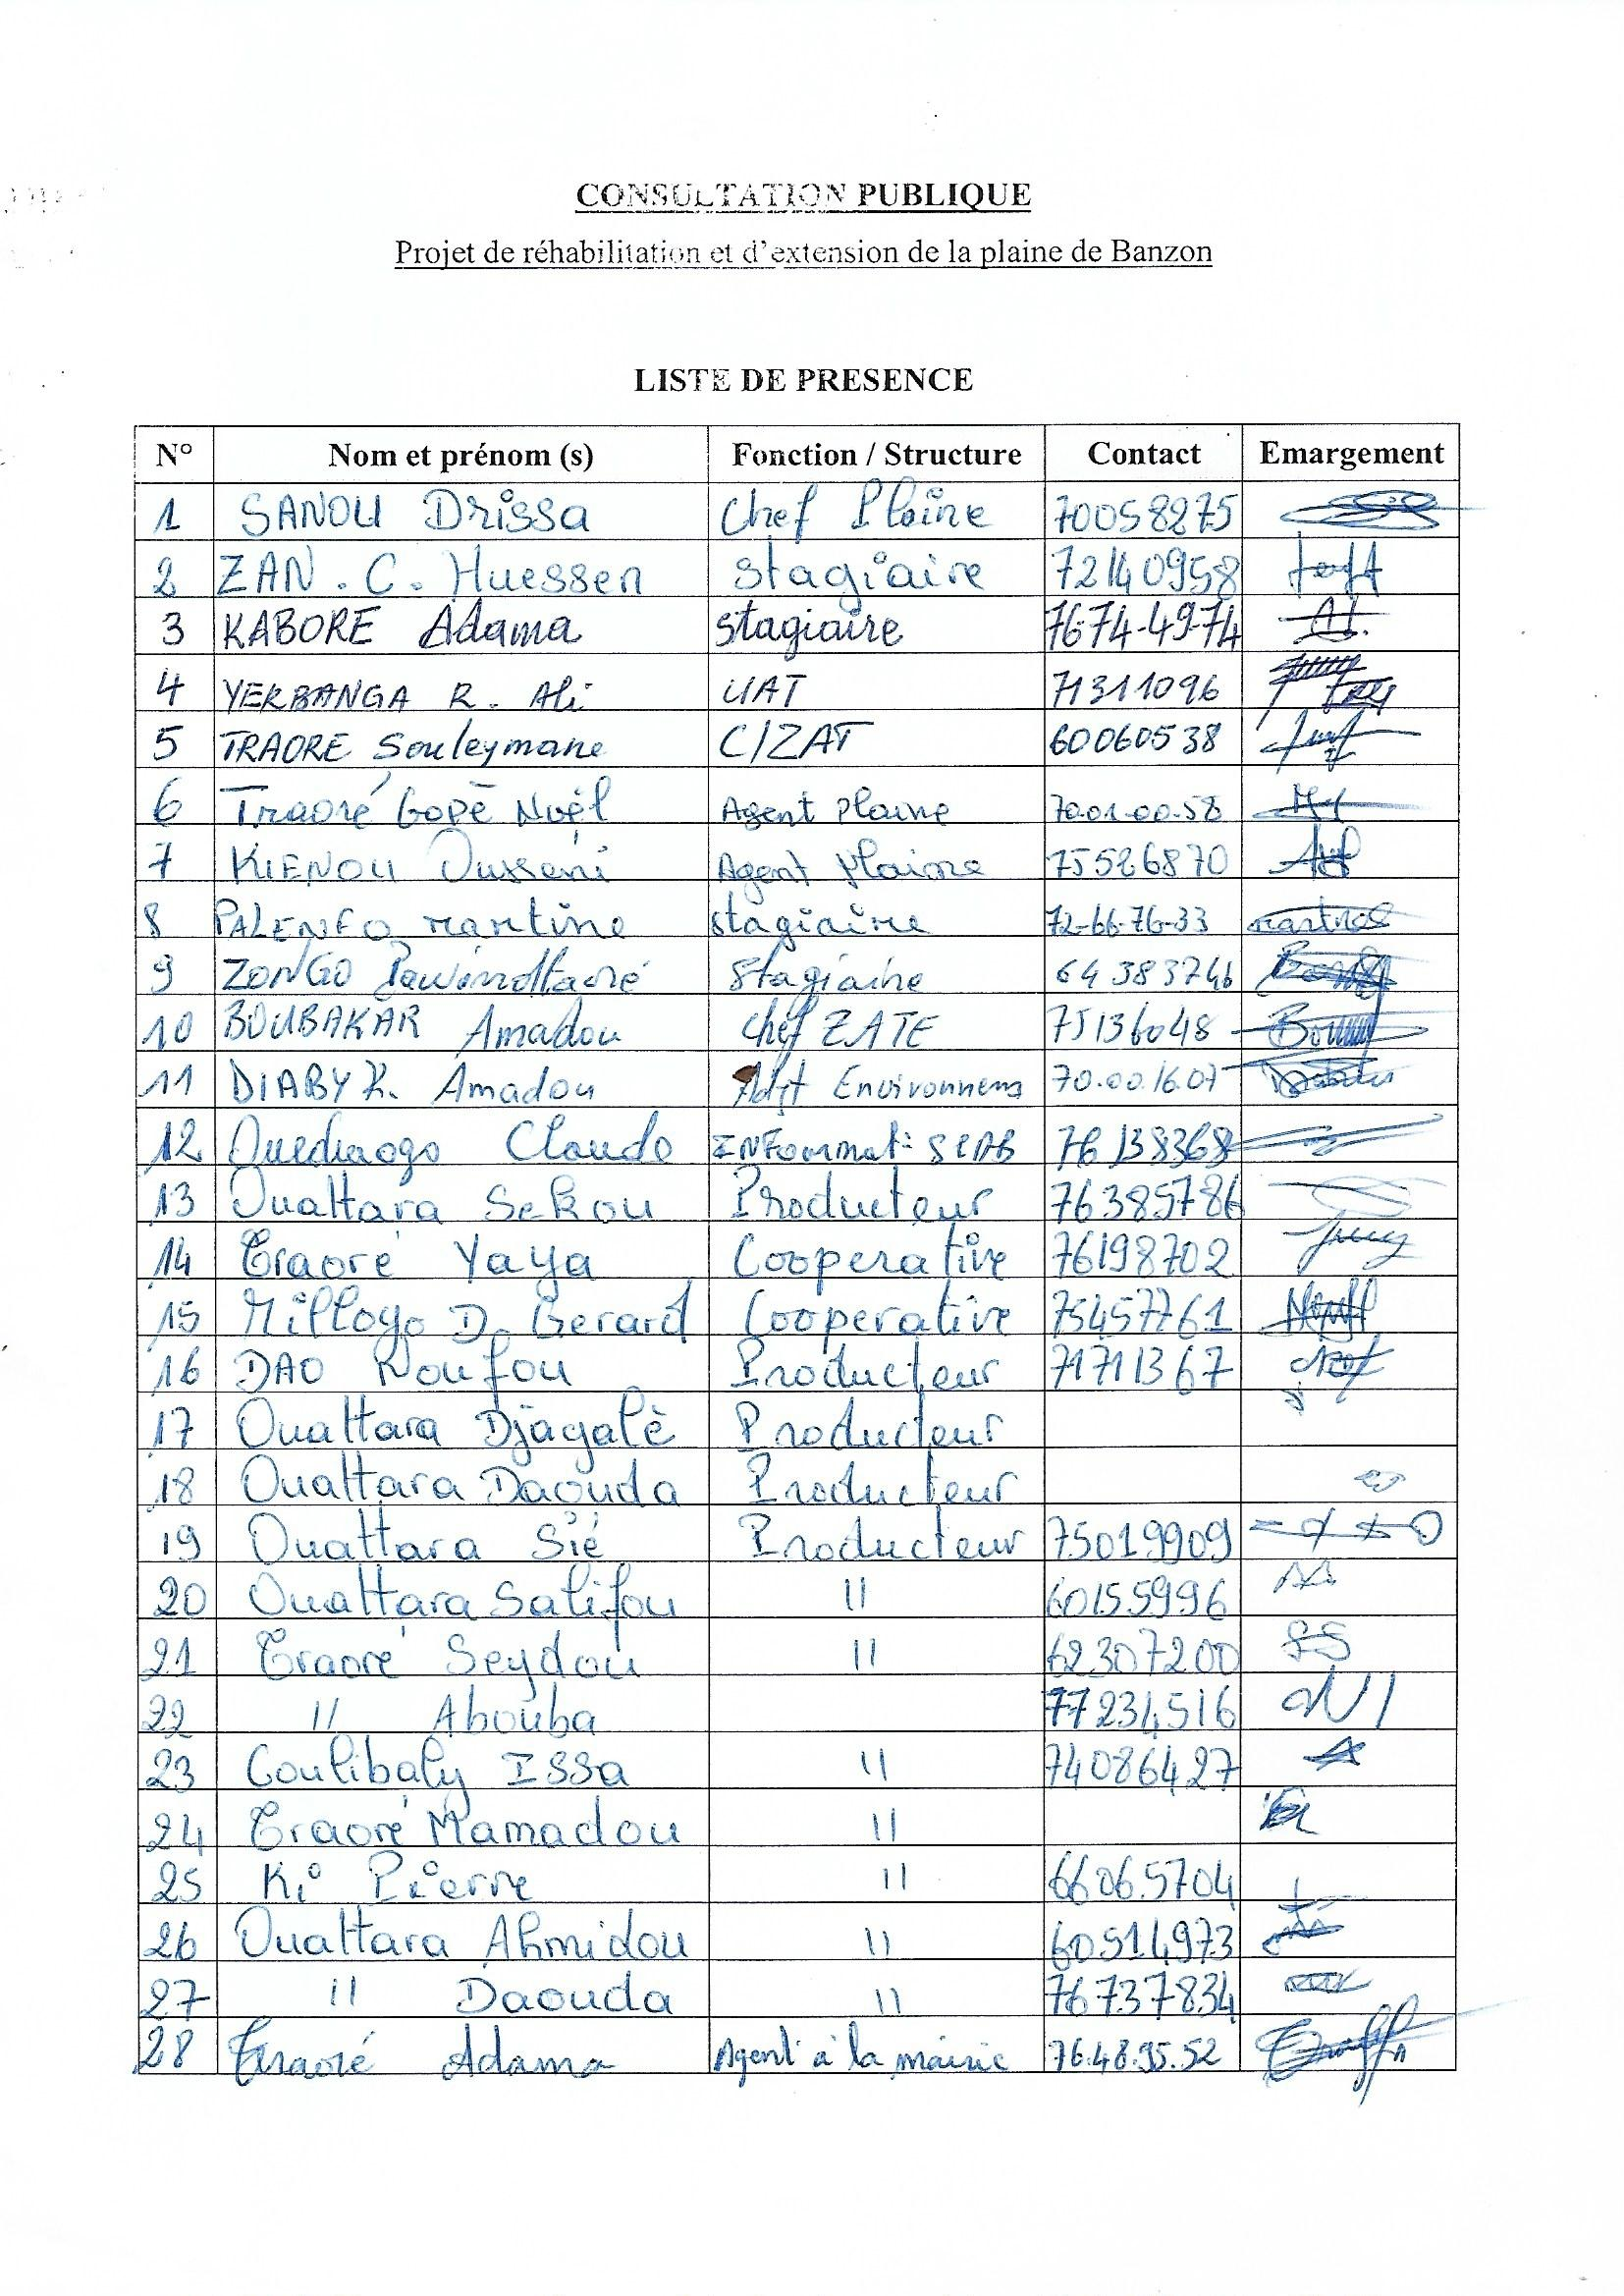 CONSULTATION PUBLIQUE
Projet de réhabilitation et d'extension de la plaine de Banzon
LISTE DE PRESENCE
N° Nom et prénom (s) Fonction / Structure Contact Emargement
1 SANOU Drissa Chef Plaine 70058275
2 ZAN . C . Huessen stagiaire 72140958
3 KABORE Adama stagiaire 76-74-49-74
4 YERBANGA R. Ali UAT 71311096
5 TRAORE Souleymane C/ZAT 60060538
6 Traoré Gopè Noël Agent Plaine 70-01-00-58
7 KIENOU Ousseni Agent plaine 75526870
8 PALENFO martine stagiaire 72-66-76-33 martine
9 ZONGO Stagiaire 64383746
10 BOUBAKAR Amadou chef ZATE 75136048
11 DIABY K. Amadou Environnem 70.00.16.07
12 Ouedraogo Claude INFormat: 76138368
13 Ouattara Sekou Producteur 76385786
14 Traoré Yaya Cooperative 76198702
15 Millogo D. Gerard Cooperative 75457761
16 DAO Noufou Producteur 71711367
17 Ouattara Djagalè Producteur
18 Ouattara Daouda Producteur
19 Ouattara Sié Producteur 75019909
20 Ouattara Salifou 11 60155996
21 Traoré Seydou 11 62307200 SS
22 11 Abouba 77234516
23 Coulibaly Issa 11 74086427
24 Traoré Mamadou 11
25 Ki Pierre 11 66065704
26 Ouattara Ahmidou 11 60514973
27 11 Daouda 11 76737834
28 Traoré Adama Agent à la mairie 76.48.95.52